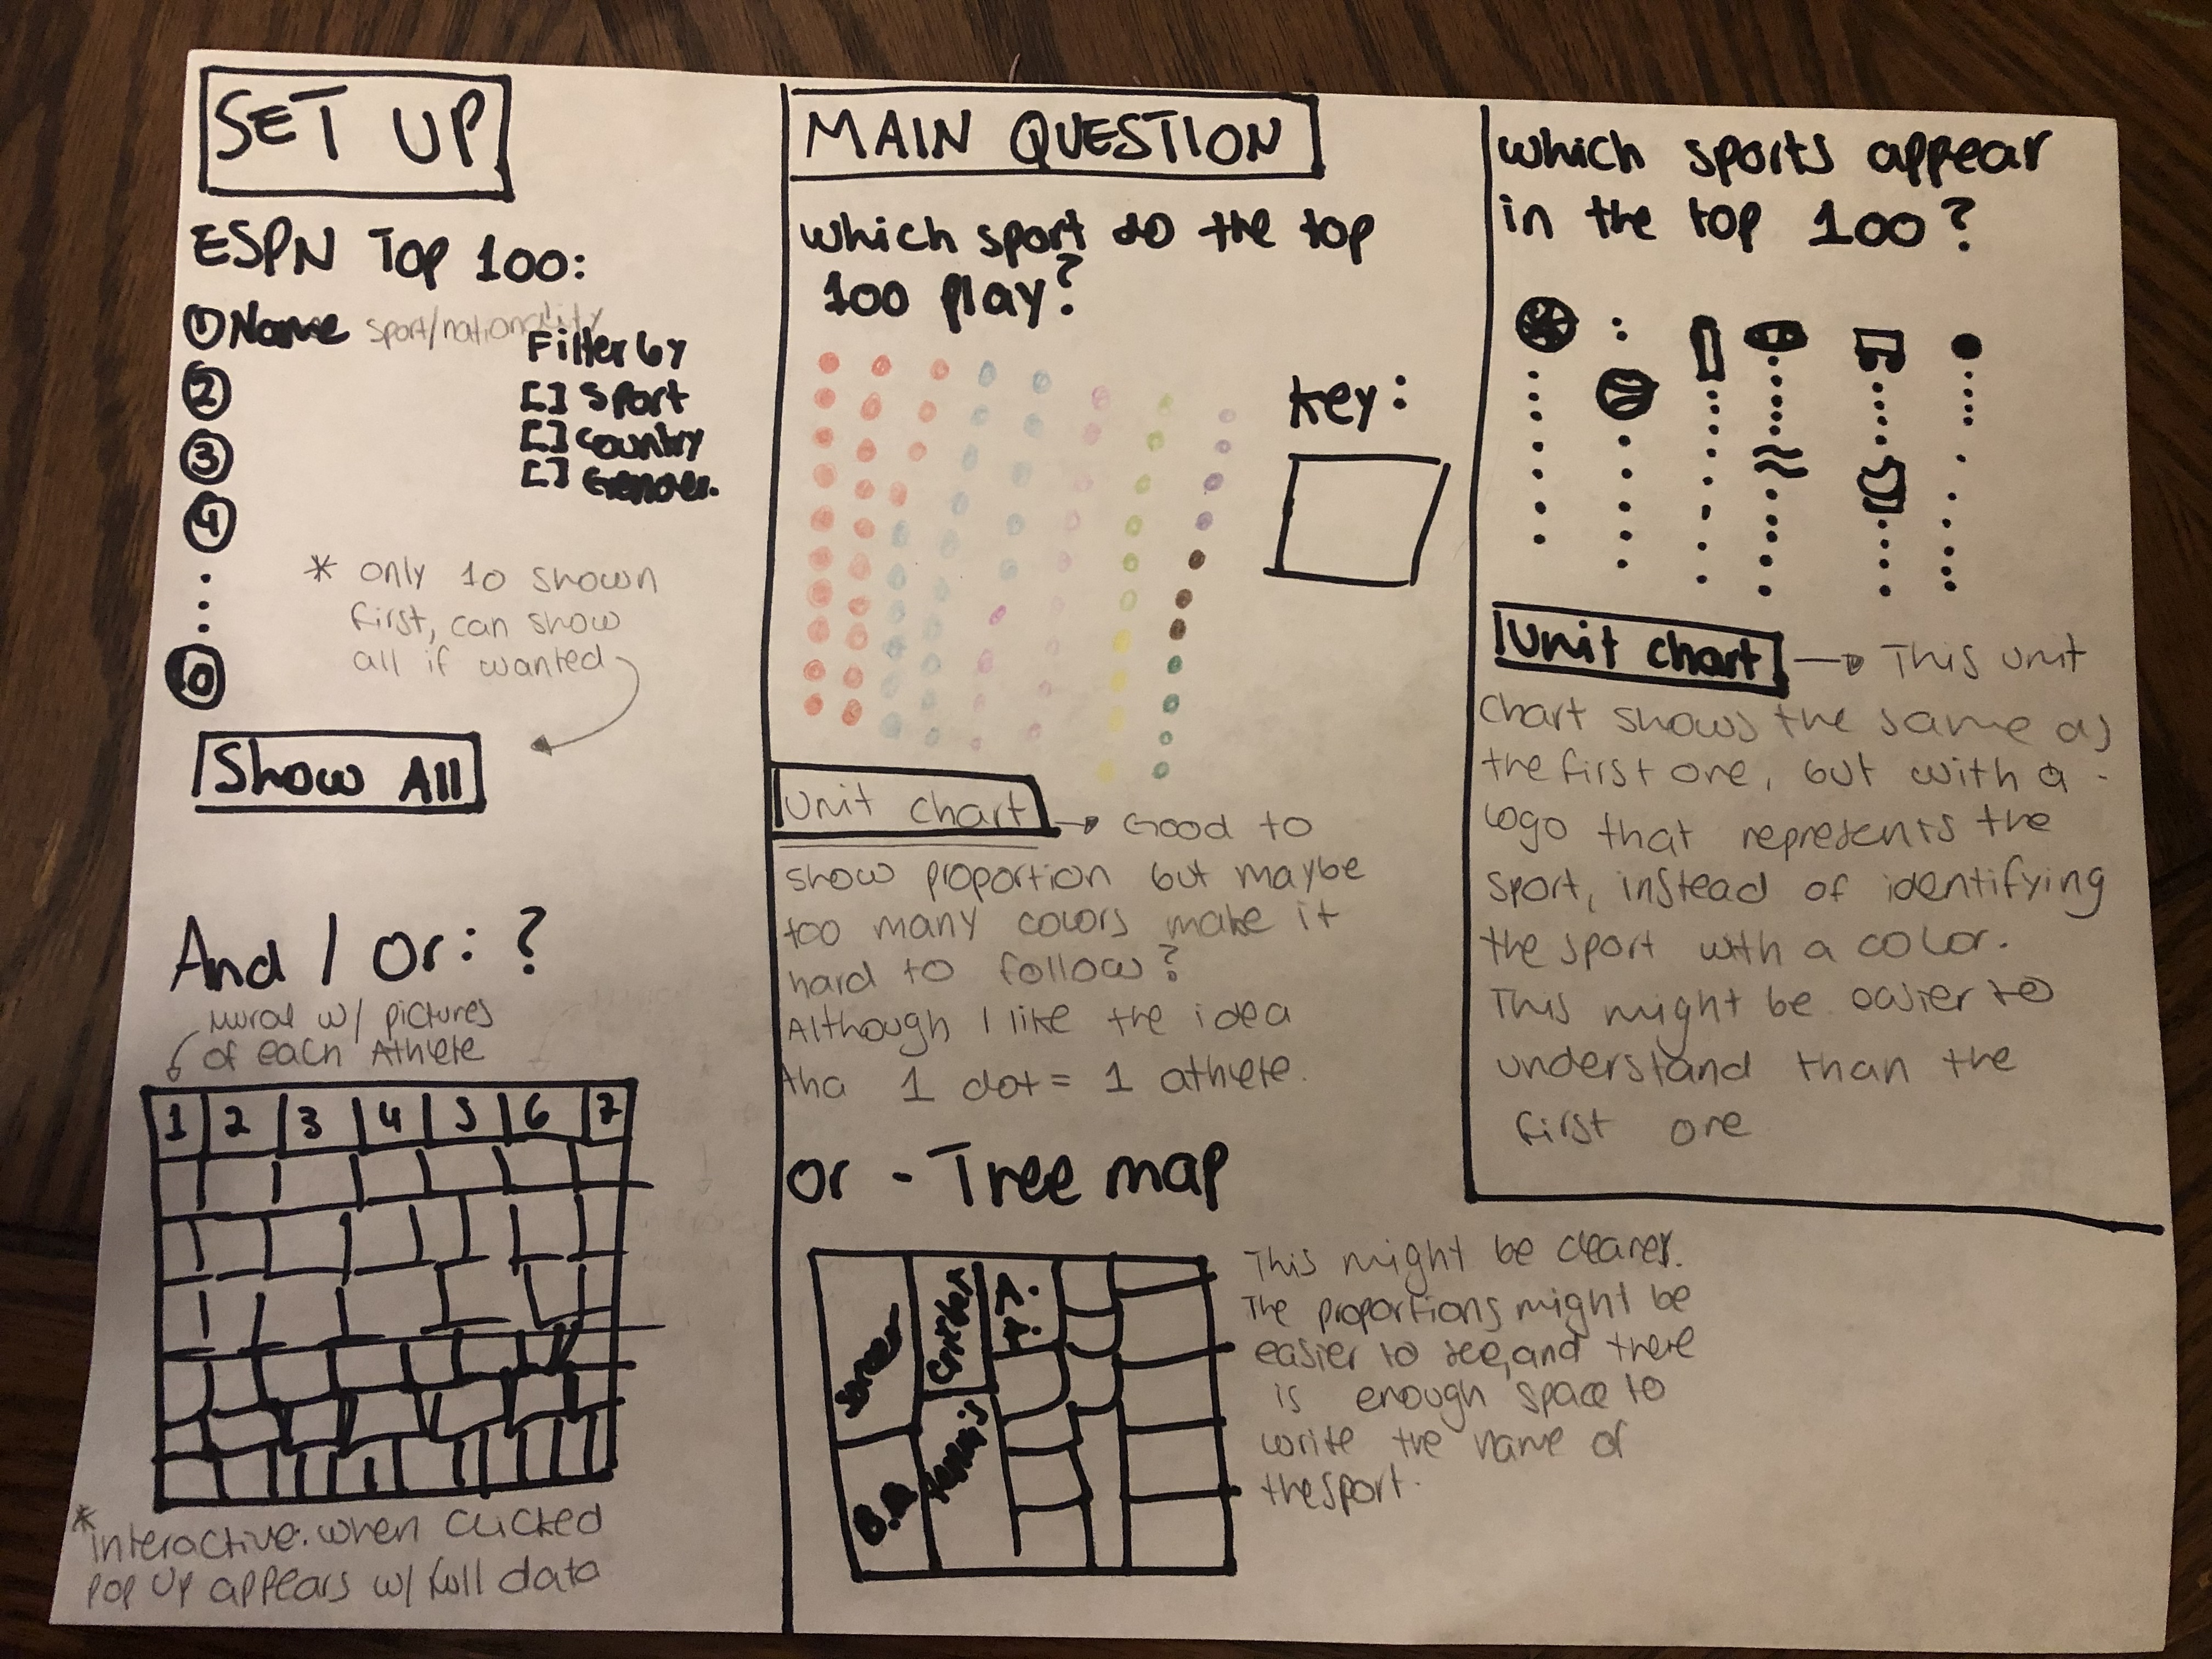 SET UP
ESPN Top 100:
1 Name sport/nationality
2
3
4
10
Filter by
[ ] sport
[ ] country
[ ] Gender.
* only 10 shown
first, can show
all if wanted
Show All
And / or: ?
mural w/ pictures
of each Athlete
1 2 3 4 5 6 7
* interactive: when clicked
pop up appears w/ full data
MAIN QUESTION
which sport do the top
100 play?
key:
Unit chart → Good to
show proportion but maybe
too many colors make it
hard to follow?
Although I like the idea
tha 1 dot = 1 athlete.
or - Tree map
Soccer
Cricket
Tennis
This might be clearer.
The proportions might be
easier to see, and there
is enough space to
write the name of
the sport.
which sports appear
in the top 100?
Unit chart → This unit
chart shows the same as
the first one, but with a
logo that represents the
sport, instead of identifying
the sport with a color.
This might be easier to
understand than the
first one